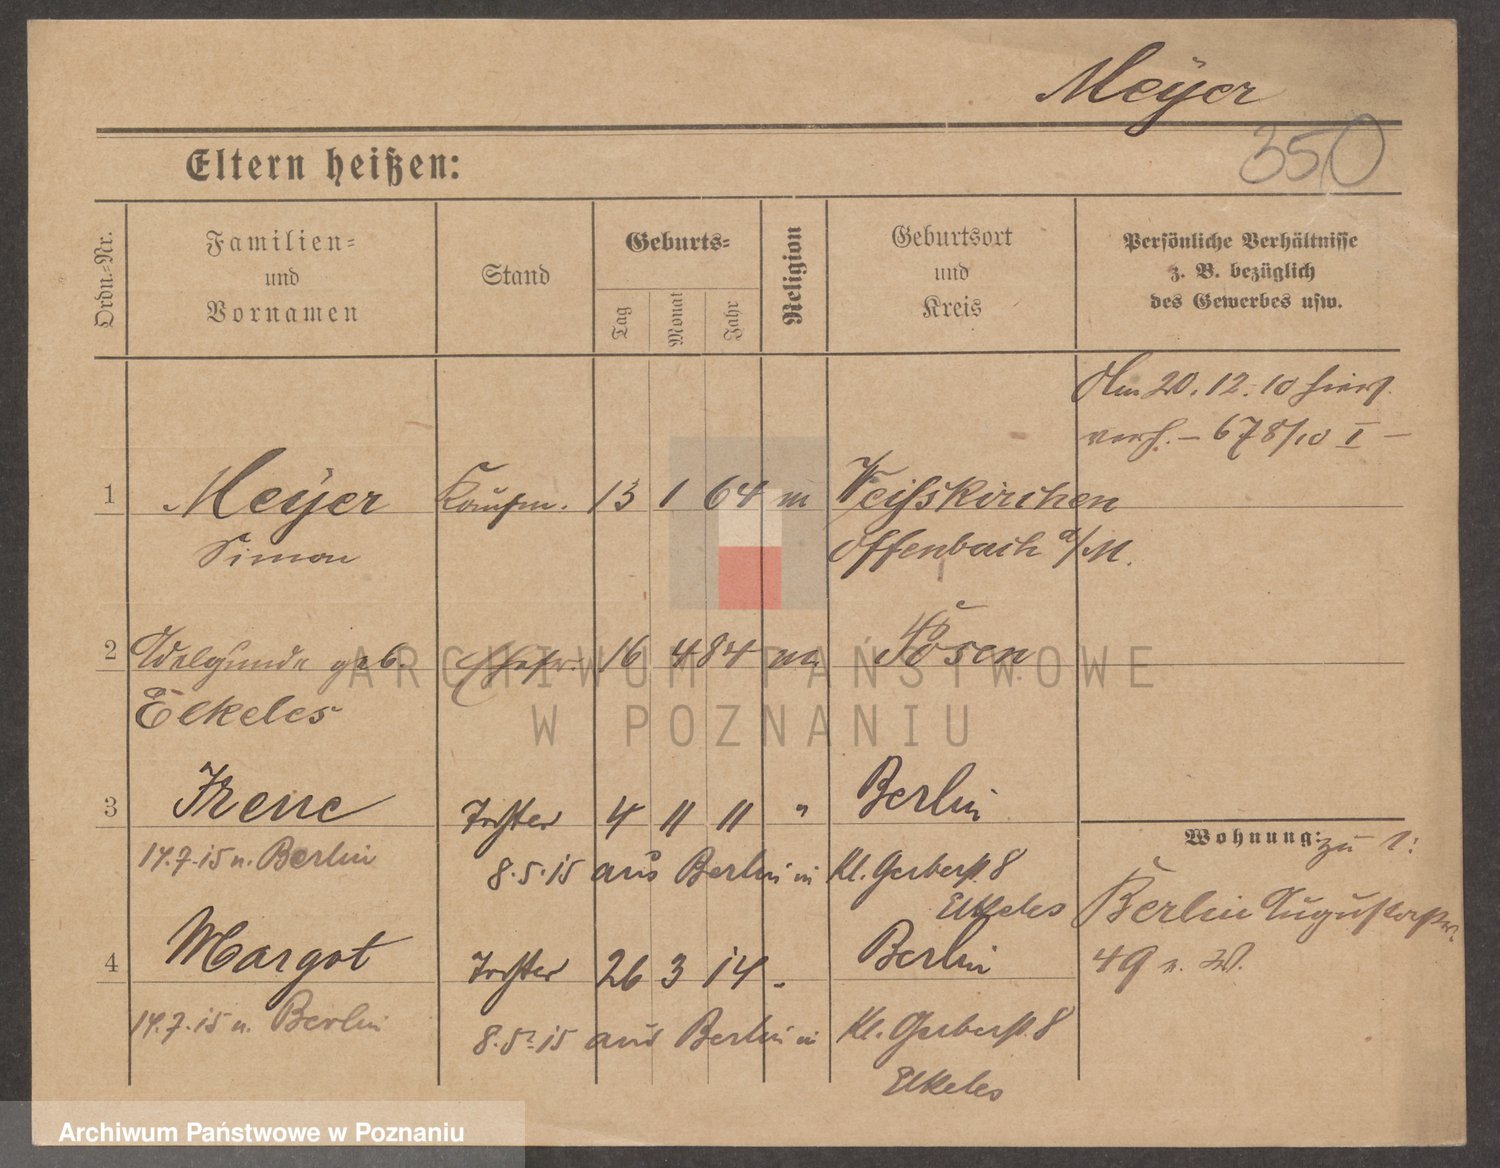 Meÿer
350
Eltern heißen:
Ordn.=Nr.
Familien=
und
Vornamen
Stand
Geburts=
Tag
Monat
Jahr
Religion
Geburtsort
und
Kreis
Persönliche Verhältnisse
z. B. bezüglich
des Gewerbes usw.
Am 20.12.10 hiers.
verh. – 678/10 I –
1 Meÿer Kaufm. 13 1 64 m Weisskirchen
Simon Offenbach a/M.
2 Adelgunde geb. Ehefr. 16 4 84 m Posen
Elkeles
3 Irene Tochter 4 11 11 " Berlin
Wohnung: zu 1:
14.7.15 n. Berlin 8.5.15 aus Berlin in Kl. Gerberst. 8
Elkeles
Berlin Augustastr.
4 Margot Tochter 26 3 14 " Berlin
49 n. W.
14.7.15 n. Berlin 8.5.15 aus Berlin in Kl. Gerberst. 8
Elkeles
ARCHIWUM PAŃSTWOWE
W POZNANIU
Archiwum Państwowe w Poznaniu